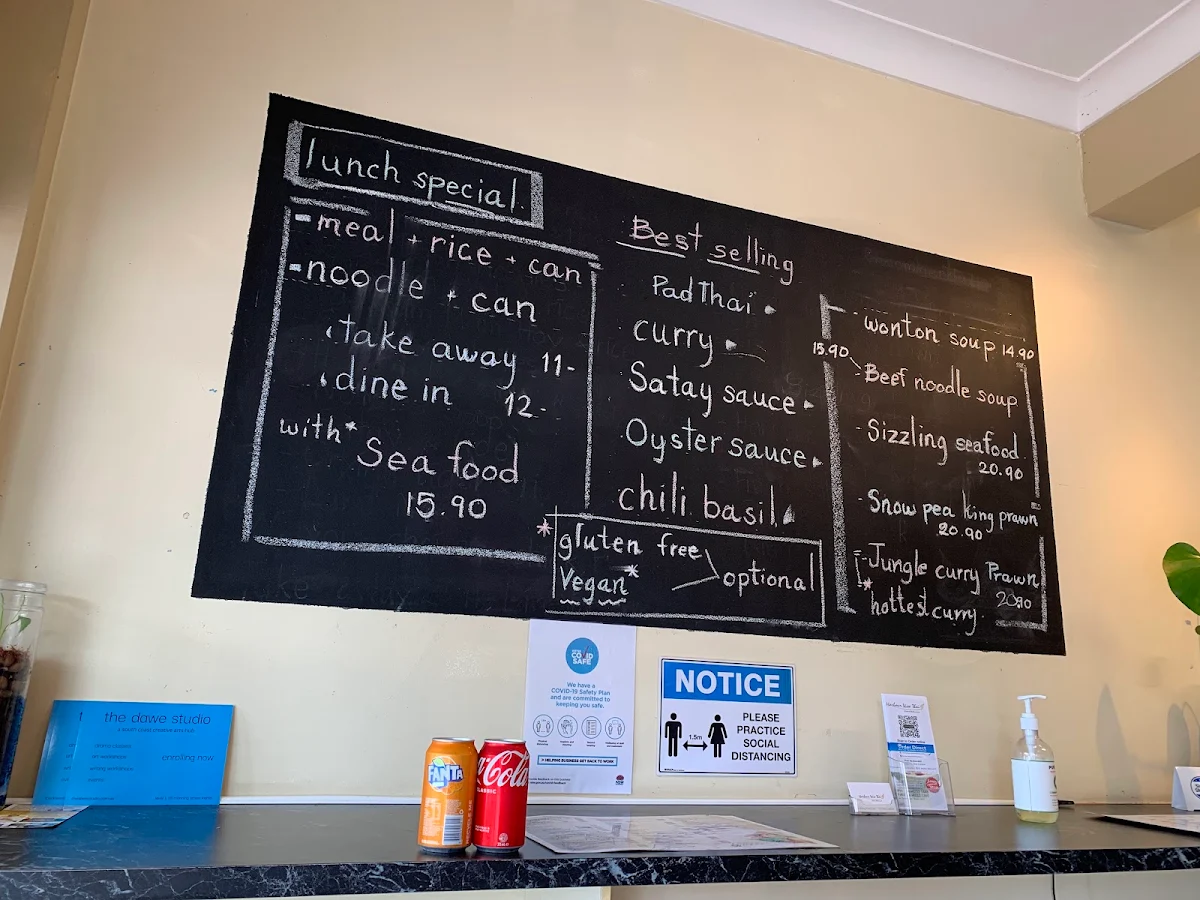 lunch special
- meal + rice + can
- noodle + can
take away 11-
dine in 12-
with* Sea food
15.90
Best selling
Pad Thai
curry
Satay sauce
Oyster sauce
chili basil
* gluten free
Vegan*
optional
wonton soup 14.90
15.90
- Beef noodle soup
- Sizzling seafood
20.90
- Snow pea king prawn
20.90
- Jungle curry Prawn
* hottest curry
20.90
the dawe studio
enrolling now
COVID SAFE
We have a
COVID-19 Safety Plan
and are committed to
keeping you safe.
HELPING BUSINESS GET BACK TO WORK
NOTICE
1.5m
PLEASE
PRACTICE
SOCIAL
DISTANCING
FANTA
Coca
CLASSIC
Order Direct